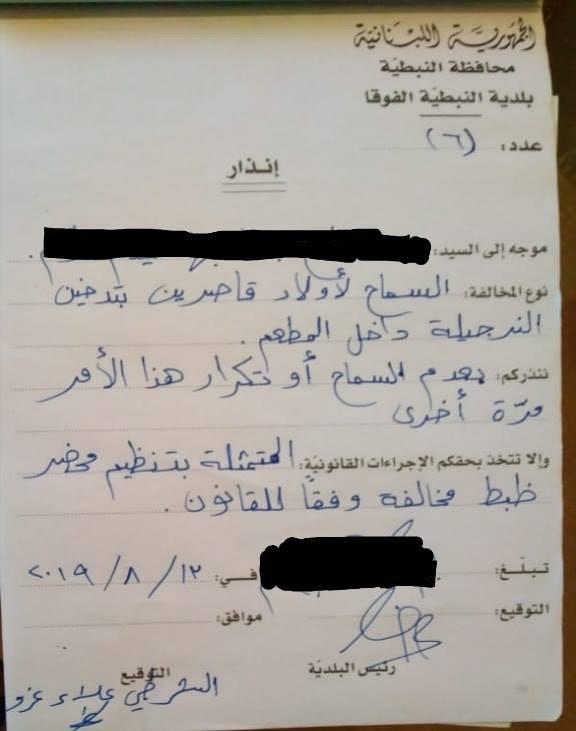 الجمهورية اللبنانية
محافظة النبطية
بلدية النبطية الفوقا
عدد: (٦)
إنذار
موجه إلى السيد:
نوع المخالفة: السماح لأولاد قاصرين بتدخين
النرجيلة داخل المطعم.
ننذركم: بعدم السماح أو تكرار هذا الأمر
مرّة أخرى
وإلا تتخذ بحقكم الإجراءات القانونية: المتمثلة بتنظيم محضر
ظبط مخالفة وفقاً للقانون.
تبلّغ: في: ١٢ / ٨ / ٢٠١٩
التوقيع: موافق:
رئيس البلدية التوقيع
الشرطي علاء غزو